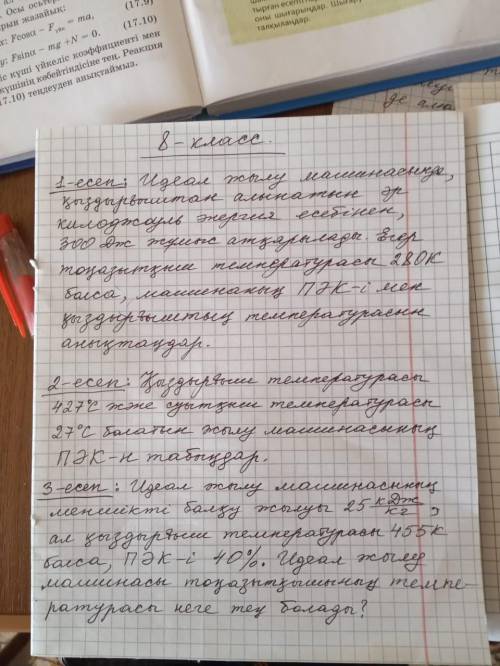 Осы осьтер
рын жазайық:
(17.9)
x: Fcosα – Fүйк = ma,
(17.10)
y: Fsinα – mg + N = 0.
үйкеліс коэффициенті мен
күшінің көбейтіндісіне тең. Реакция
17.10) теңдеуден анықтаймыз.
оны шығарыңдар. Шығару
талқылаңдар.
8-класс.
1-есеп: Идеал жылу машинасында,
қыздырғыштан алынатын әр
килоджоуль энергия есебінен,
300 Дж жұмыс атқарылады. Егер
тоңазытқыш температурасы 280К
болса, машинаның ПӘК-і мен
қыздырғыштың температурасын
анықтаңдар.
2-есеп: Қыздырғыш температурасы
427°С және суытқыш температурасы
27°С болатын жылу машинасының
ПӘК-н табыңдар.
3-есеп: Идеал жылу машинасының
меншікті балқу жылуы 25 кДж/кг,
ал қыздырғыш температурасы 455К
болса, ПӘК-і 40%. Идеал жылу
машинасы тоңазытқышының темпе-
ратурасы неге тең болады?